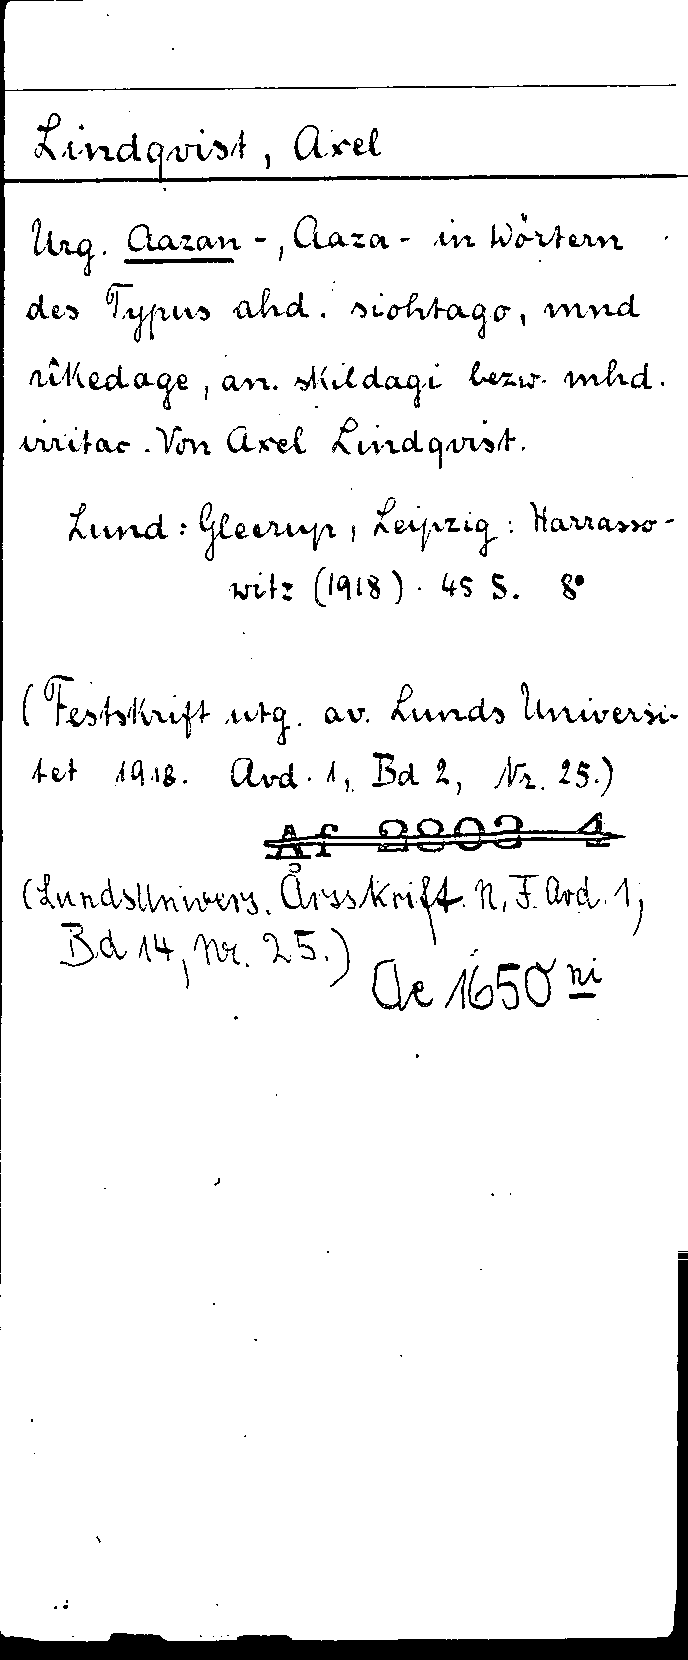 Lindqvist, Axel
Urg. Aazan-, Aaza- in Wörtern
des Typus ahd. siohtago, mnd
rîkedage, an. skildagi bezw. mhd.
irritac. Von Axel Lindqvist.
Lund: Gleerup, Leipzig: Harrasso-
witz (1918). 45 S. 8°
(Festskrift utg. av. Lunds Universi-
tet 1918. Avd. 1, Bd 2, Nr. 25.)
Af 2803 4
(Lunds Univers. Årsskrift. N. F. Avd. 1,
Bd 14, Nr. 25.)
Ae 1650 ni